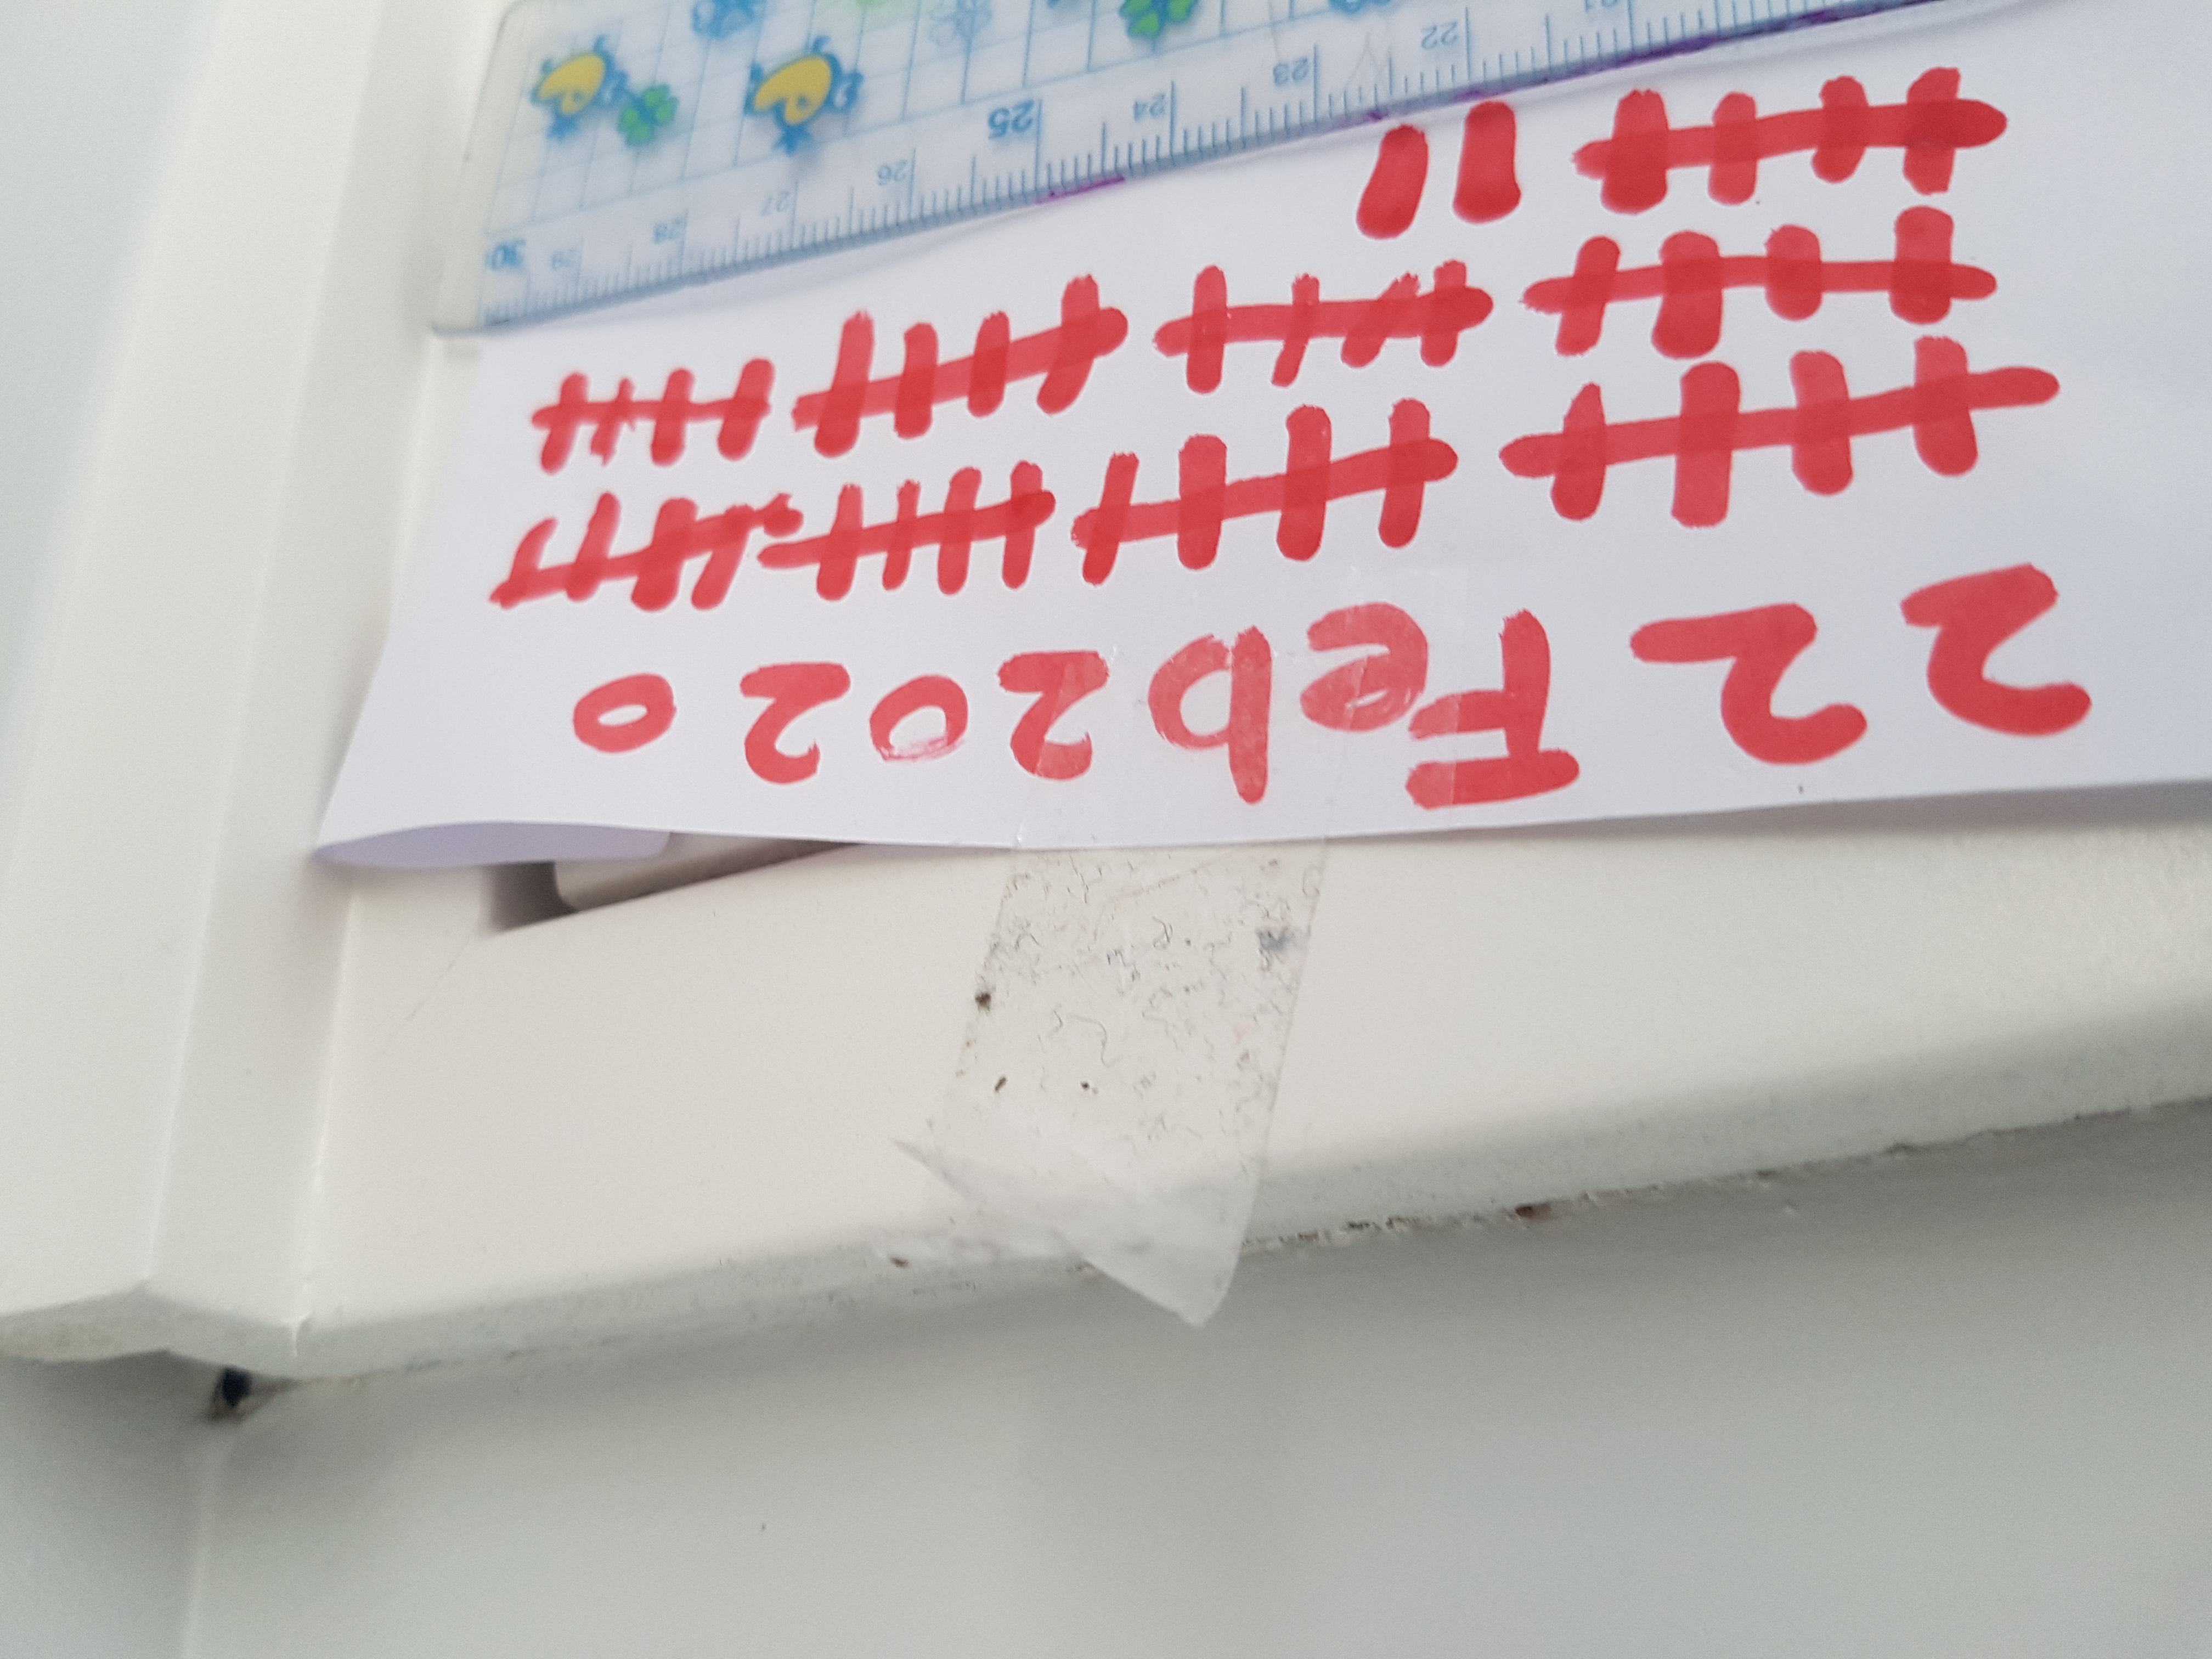 22 Feb 2020
22 23 24 25 26 27 28 29 30